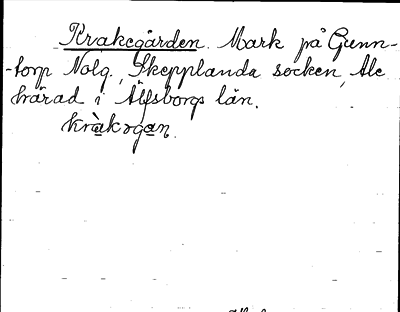 Krakegården. Mark på Gunn-
-torp Nolg., Skepplanda socken, Ale
härad i Älfsborgs län.
kràkɔgan.